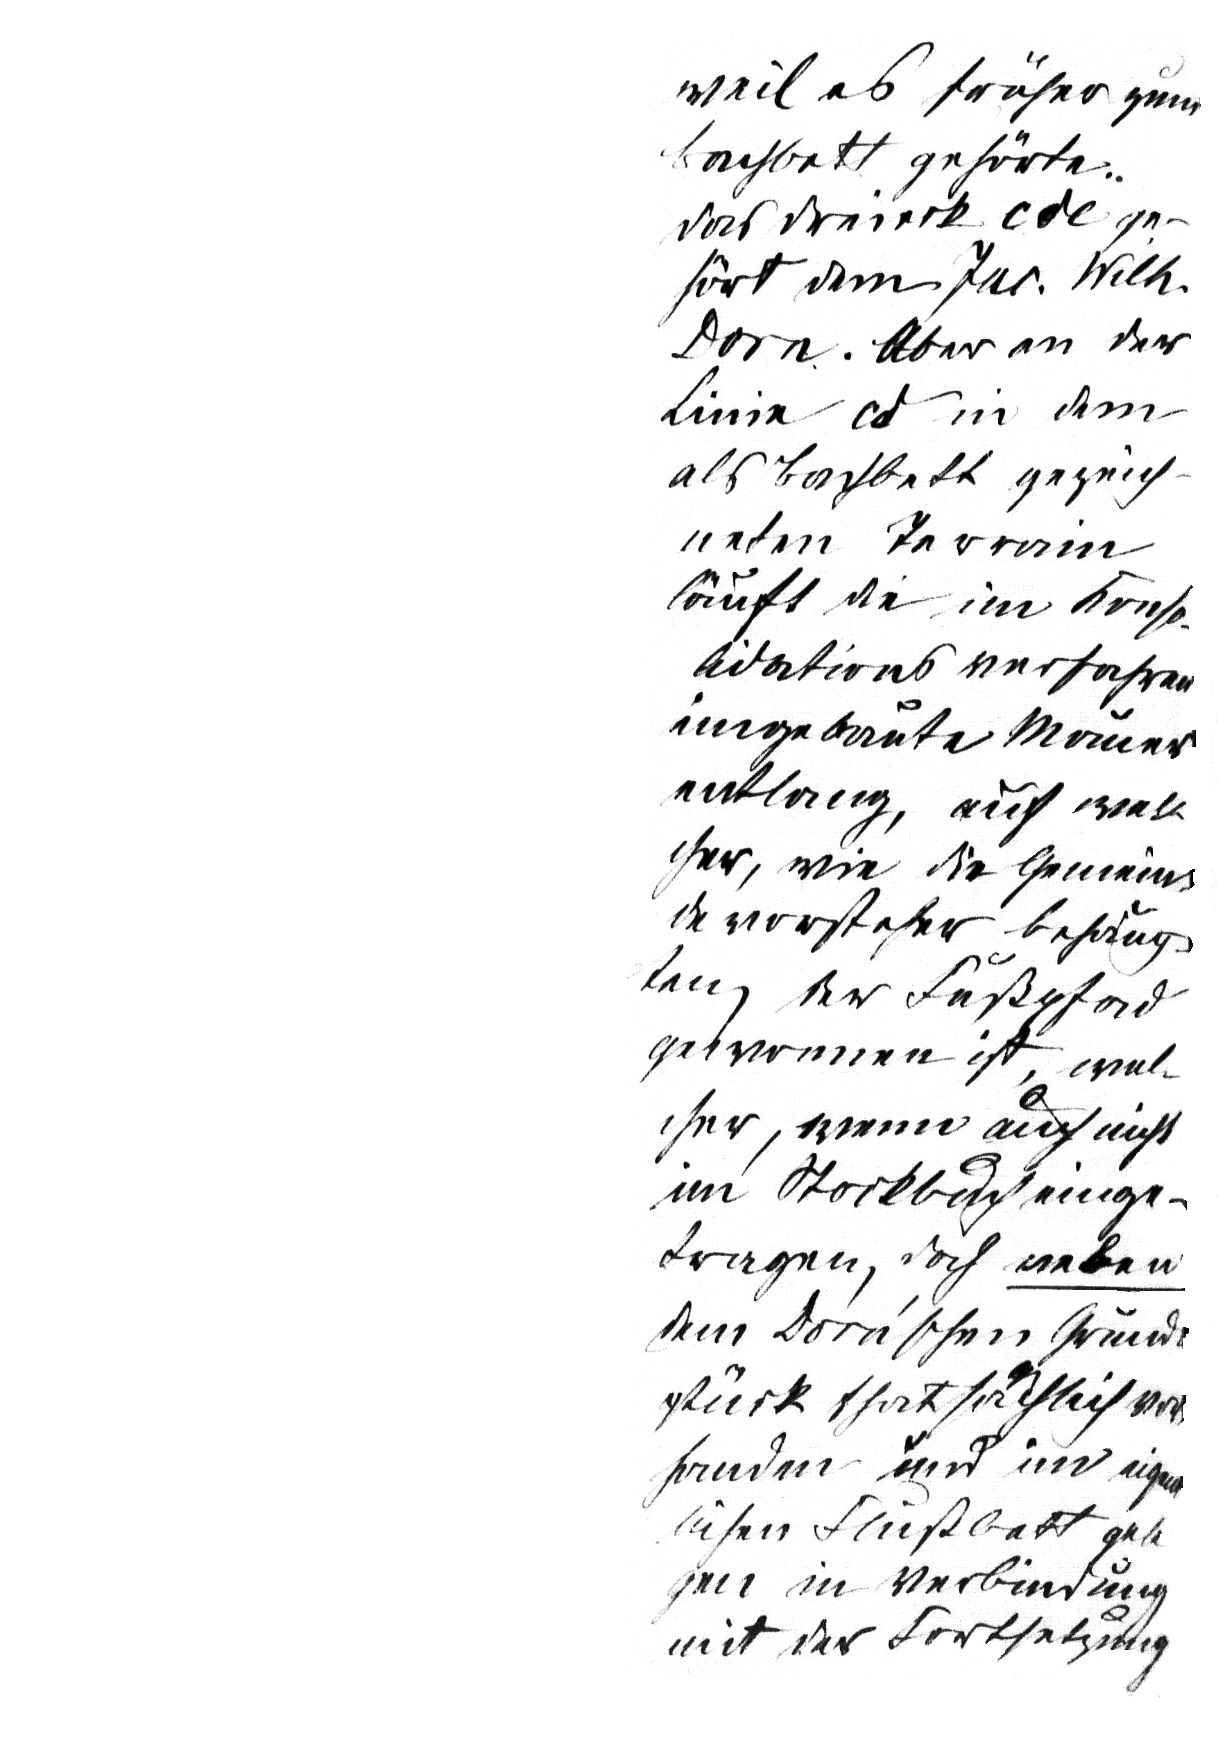 weil es früher zum
Bachbett gehörte.
das dreieck cde ge-
hört dem Jac. Wilh.
Dorn. Aber an der
Linie cd in dem
als Bachbett gezeich-
neten Terrain
läuft die im Konso-
lidations verfahren
eingebaute Mauer
entlang, auf wel-
cher, wie die Gemein-
devorsteher behaup-
ten, der Fußpfad
gewonnen ist, wel-
cher, wenn auch nicht
im Stockbuch einge-
tragen, doch neben
dem Dorn'schen Grund-
stück thatsächlich vor
handen und im eigent
lichen Flußbett gele
gen in Verbindung
mit der Fortsetzung